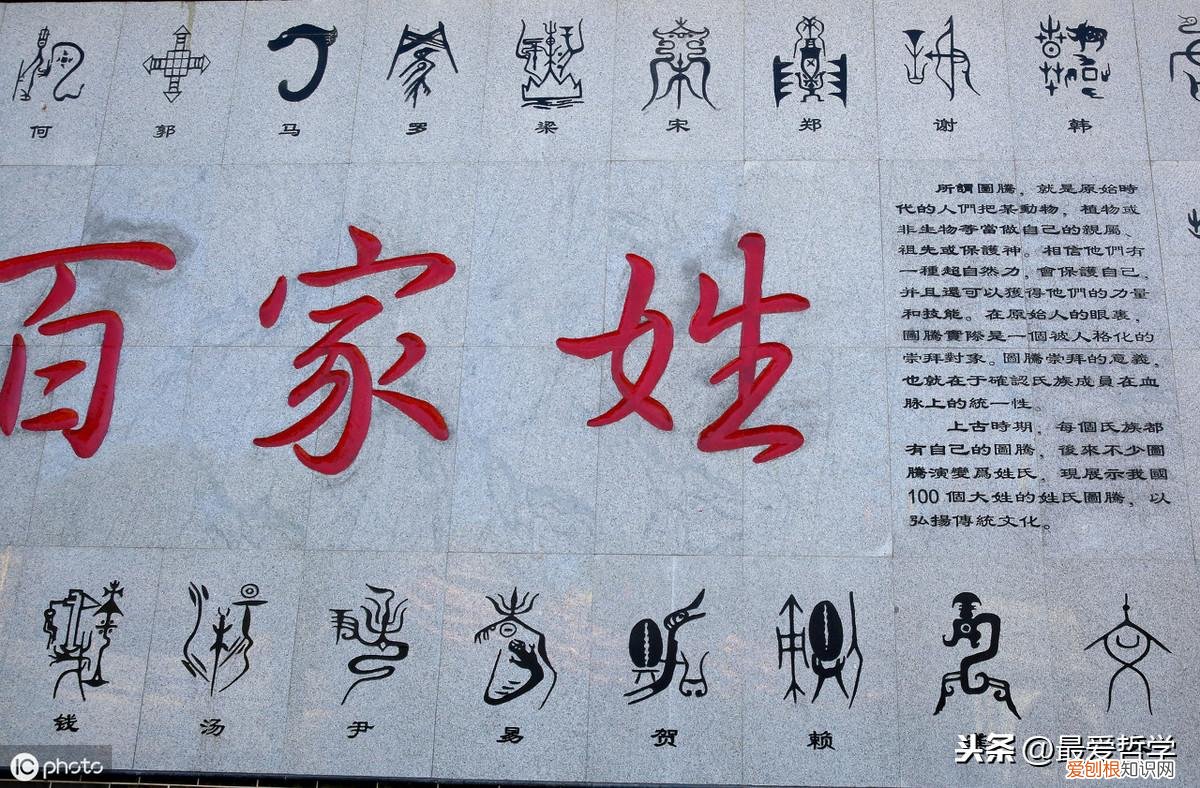 何 郭 马 罗 梁 宋 郑 谢 韩
百家姓
所謂圖騰，就是原始時
代的人們把某動物，植物或
非生物等當做自己的親屬、
祖先或保護神。相信他們有
一種超自然力，會保護自己，
并且還可以獲得他們的力量
和技能。在原始人的眼裏，
圖騰實際是一個被人格化的
崇拜對象。圖騰崇拜的意義，
也就在于確認氏族成員在血
脉上的統一性。
上古時期，每個氏族都
有自己的圖騰，後來不少圖
騰演變爲姓氏，現展示我國
100個大姓的姓氏圖騰，以
弘揚傳統文化。
钱 汤 尹 易 贺 赖
IC photo
头条 @最爱哲学
爱刨根知识网